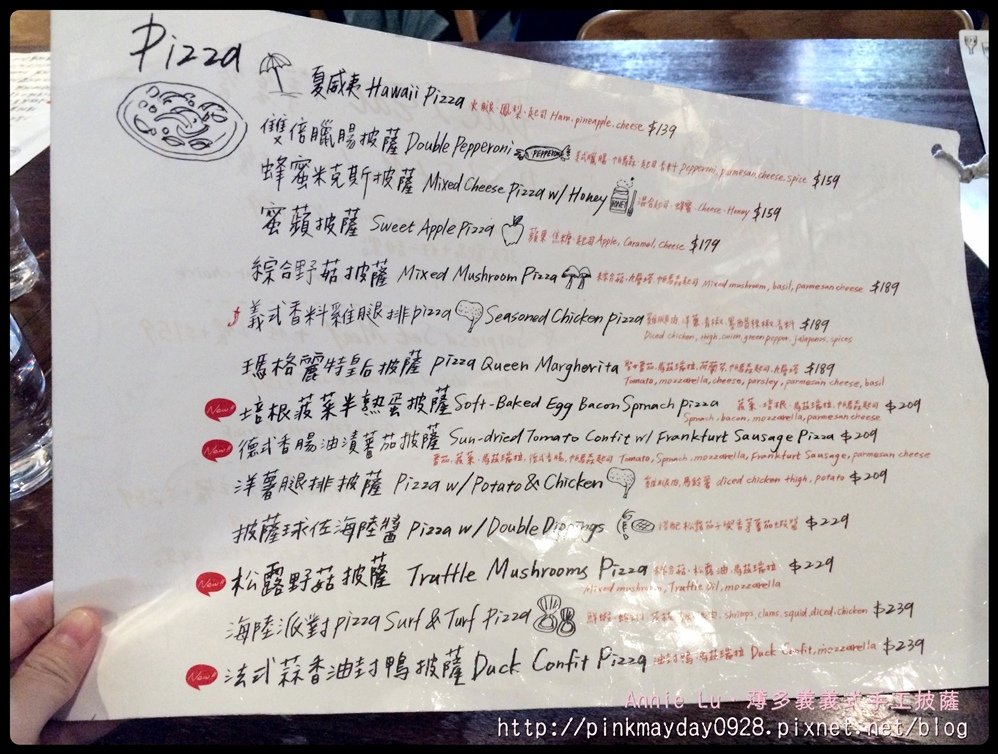 Pizza
夏威夷 Hawaii Pizza 火腿、鳳梨、起司 Ham, pineapple, cheese $139
雙倍臘腸披薩 Double Pepperoni PEPPERONI 美式臘腸、帕馬森起司、香料 pepperoni, parmesan cheese, spice $159
蜂蜜米克斯披薩 Mixed Cheese Pizza w/ Honey HONEY 混合起司、蜂蜜、Cheese, Honey $159
蜜蘋披薩 Sweet Apple Pizza 蘋果、焦糖、起司 Apple, Caramel, Cheese $179
綜合野菇披薩 Mixed Mushroom Pizza 綜合菇、九層塔、帕馬森起司 Mixed mushroom, basil, parmesan cheese $189
義式香料雞腿排pizza Seasoned Chicken pizza 雞腿肉、洋蔥、青椒、墨西哥辣椒、香料 $189
Diced chicken, thigh, onion, green pepper, jalapenos, spices
瑪格麗特皇后披薩 pizza Queen Margherita 聖女番茄、馬茲瑞拉、荷蘭芹、帕馬森起司、九層塔 $189
Tomato, mozzarella, cheese, parsley, parmesan cheese, basil
New!! 培根菠菜半熟蛋披薩 Soft-Baked Egg Bacon Spinach pizza 菠菜、培根、馬茲瑞拉、帕馬森起司 $209
Spinach, bacon, mozzarella, parmesan cheese
New!! 德式香腸油漬蕃茄披薩 Sun-dried Tomato Confit w/ Frankfurt Sausage Pizza $209
番茄、菠菜、馬茲瑞拉、德式香腸、帕馬森起司 Tomato, Spinach, mozzarella, Frankfurt Sausage, parmesan cheese
洋薯腿排披薩 Pizza w/ Potato & Chicken 雞腿肉、馬鈴薯 diced chicken thigh, potato $209
披薩球佐海陸醬 Pizza w/ Double Dippings 搭配松露茄子 $229
New!! 松露野菇披薩 Truffle Mushrooms Pizza 綜合菇、松露油、馬茲瑞拉 $229
Mixed mushroom, Truffle Oil, mozzarella
海陸派對pizza Surf & Turf Pizza 鮮蝦、shrimps, clams, squid, diced, chicken $239
New!! 法式蒜香油封鴨披薩 Duck Confit Pizza 油封鴨、馬茲瑞拉 Duck Confit, mozzarella $239
Annie Lu、薄多義義式手工披薩
http://pinkmayday0928.pixnet.net/blog